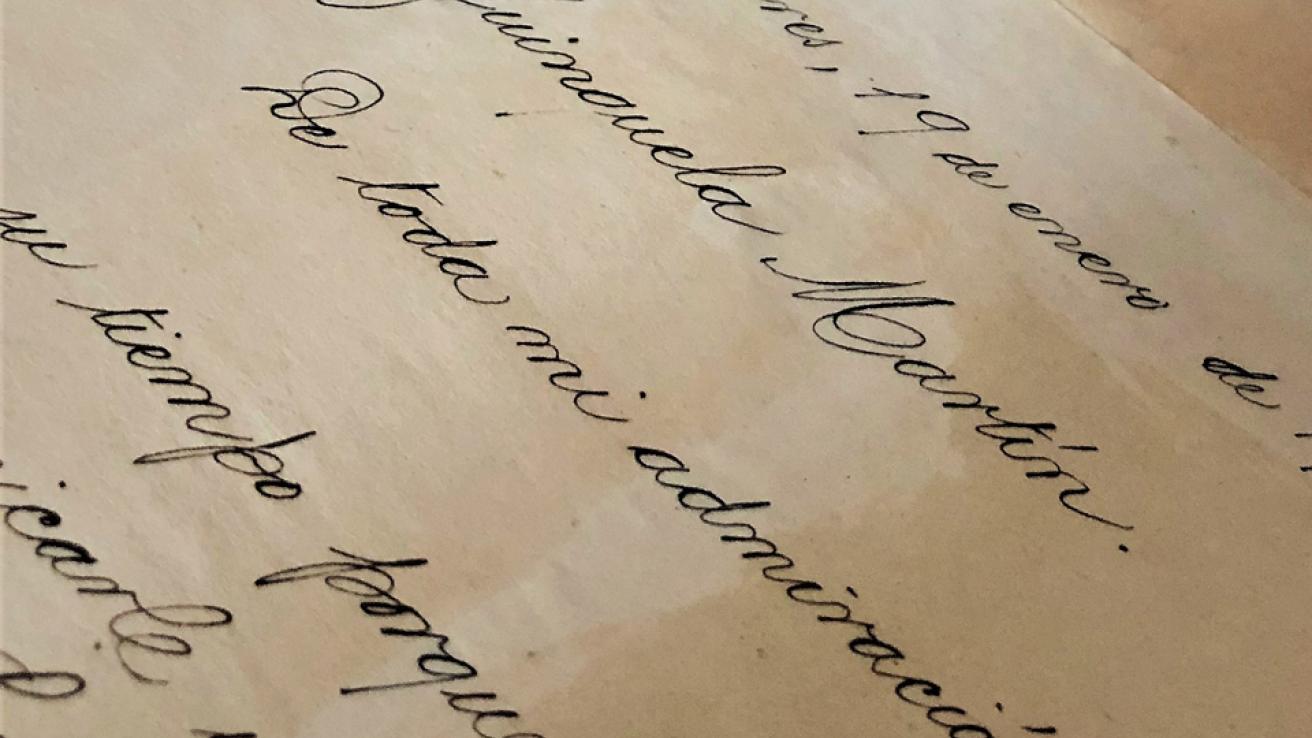 res, 19 de enero de
Quinquela Martín.
De toda mi admiració
su tiempo porqu
icarle